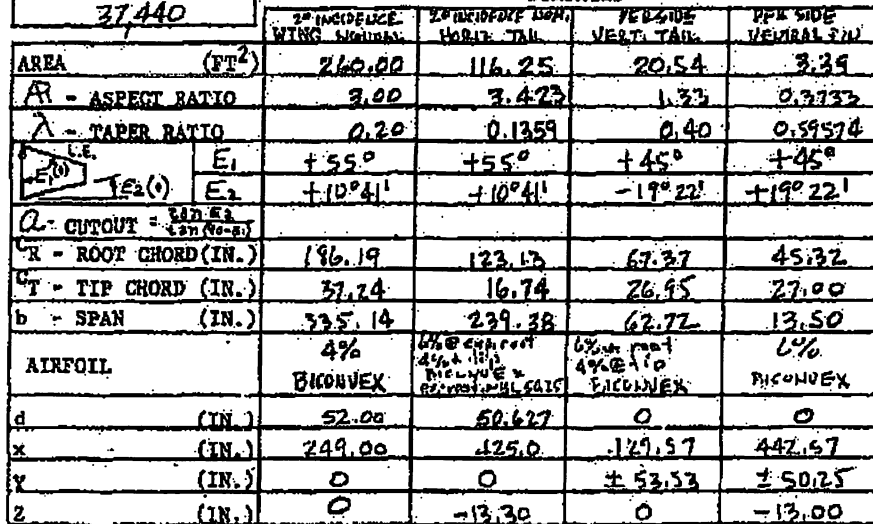 37,440
2° INCIDENCE WING NOMINAL 2° INCIDENCE NOM. HORIZ. TAIL PER SIDE VERT. TAIL PER SIDE VENTRAL FIN
AREA (FT2) 260.00 116.25 20.54 3.39
AR - ASPECT RATIO 3.00 3.423 1.33 0.3733
λ - TAPER RATIO 0.20 0.1359 0.40 0.59574
L.E. E1(°) E1 +55° +55° +45° +45°
E2(°) E2 +10°41' +10°41' -19°22' +19°22'
a - CUTOUT = tan E2 / tan (90-E1)
CR - ROOT CHORD (IN.) 186.19 123.13 67.37 45.32
CT - TIP CHORD (IN.) 37.24 16.74 26.95 27.00
b - SPAN (IN.) 335.14 239.38 62.72 13.50
AIRFOIL 4% BICONVEX 6% @ root 4% @ tip BICONVEX 6% at root 4% @ tip BICONVEX 6% BICONVEX
d (IN.) 52.00 50.627 0 0
x (IN.) 249.00 425.0 429.57 442.57
y (IN.) 0 0 ± 53.53 ± 50.25
z (IN.) 0 -13.30 0 -13.00